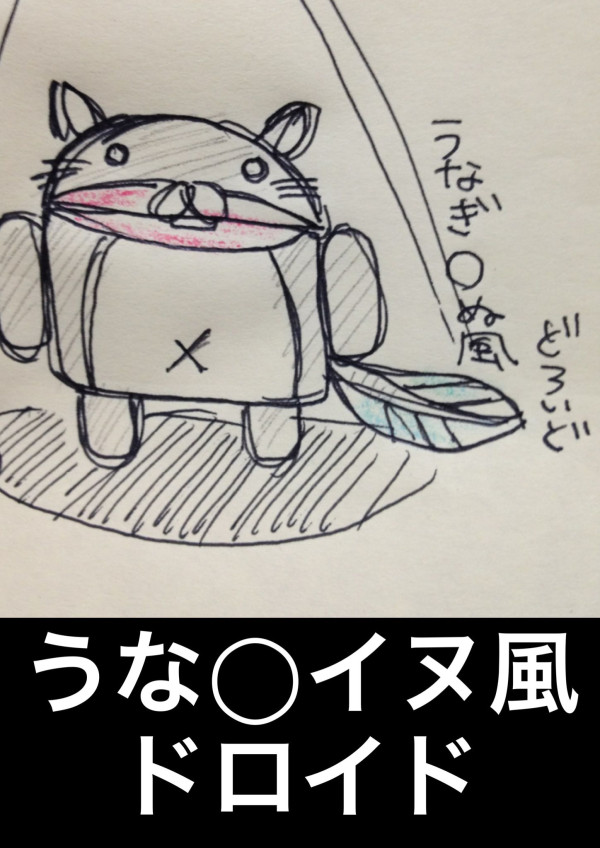 うなぎ○ぬ風
どろいど
うな◯イヌ風
ドロイド